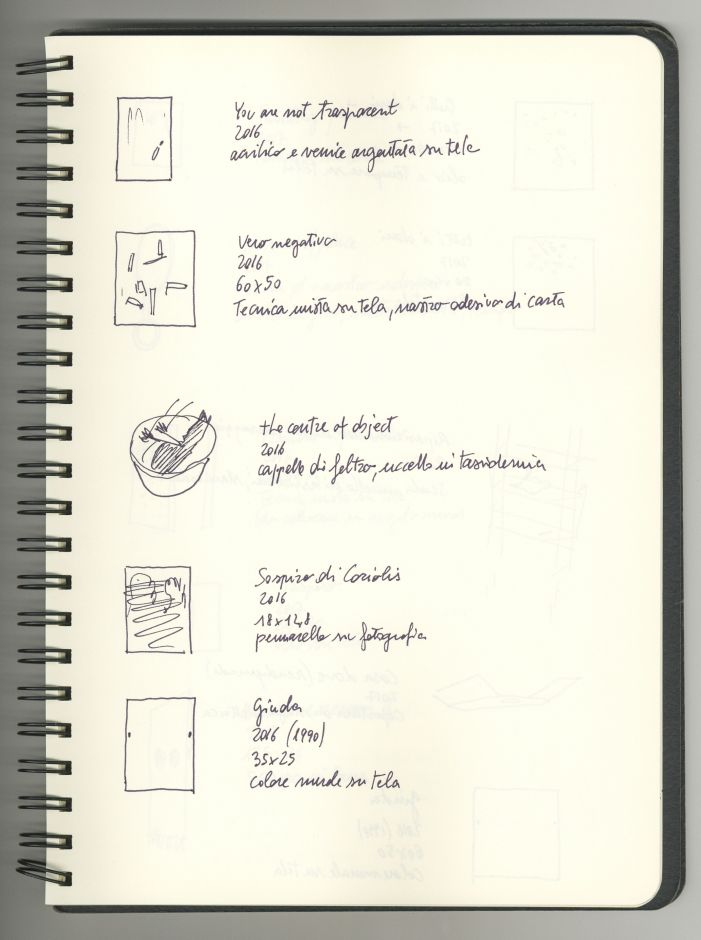 You are not trasparent
2016
acrilico e vernice argentata su tela
Vero negativo
2016
60x50
Tecnica mista su tela, nastro adesivo di carta
the centre of object
2016
cappello di feltro, uccello in tassidermia
Sospiro di Coriolis
2016
18x12,8
pennarello su fotografia
Giuda
2016 (1990)
35x25
colore murale su tela